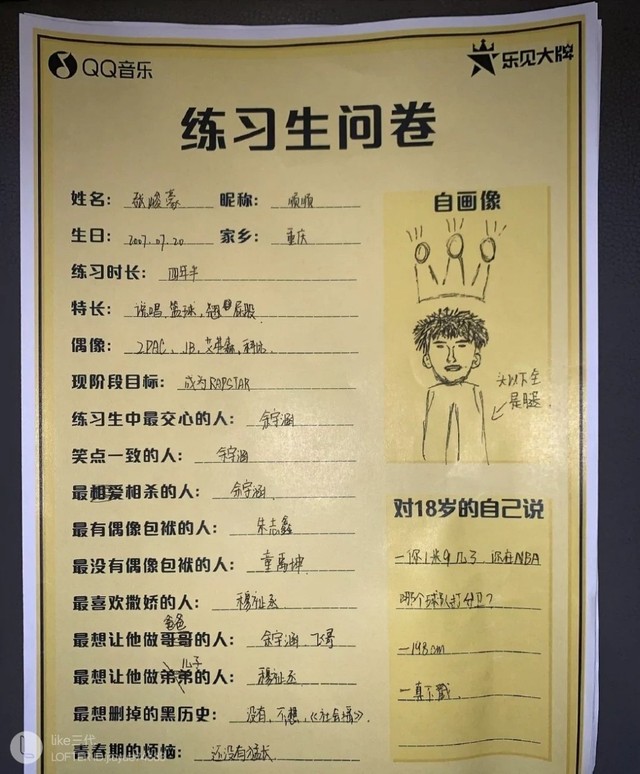 QQ音乐
乐见大牌
练习生问卷
姓名: 张峻豪 昵称: 顺顺
生日: 2007.07.20 家乡: 重庆
练习时长: 四年半
特长: 说唱、篮球、翘屁股
偶像: 2PAC、JB、艾弗森、科比
现阶段目标: 成为RAPSTAR
练习生中最交心的人: 余宇涵
笑点一致的人: 余宇涵
最相爱相杀的人: 余宇涵
最有偶像包袱的人: 朱志鑫
最没有偶像包袱的人: 童禹坤
最喜欢撒娇的人: 穆祉丞
爸爸
最想让他做哥哥的人: 余宇涵、飞哥
儿子
最想让他做弟弟的人: 穆祉丞
最想删掉的黑历史: 没有,不想,《社会摇》
青春期的烦恼: 还没有猛长
自画像
头以下全
是腿
对18岁的自己说
—你1米9几了 你在NBA
哪个球队打分卫?
—198cm
—真下戳
like三代